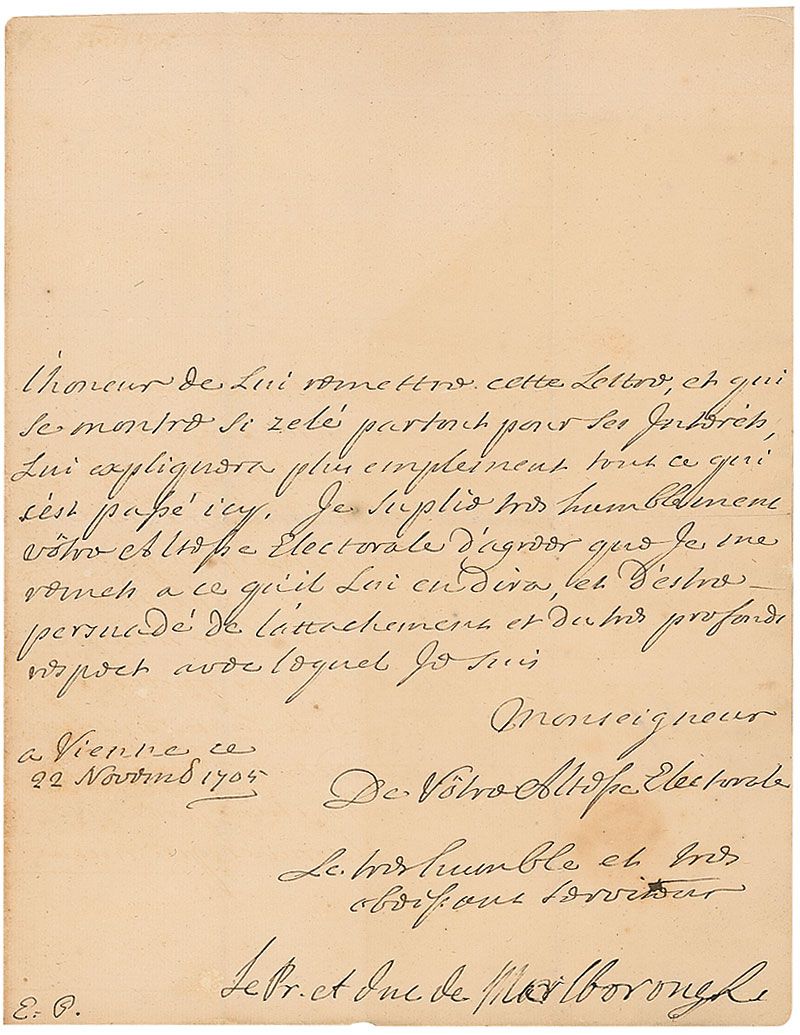 l'honeur de Lui remettre cette Lettre, et qui
se montre si zelé partout pour ses Interéts,
Lui expliquera plus emplement tout ce qui
s'est passé icy. Je suplie tres humblement
Vôtre Altesse Electorale d'agreer que Je me
remets a ce qu'il Lui en dira, et D'estre
persuadé de l'attachement et du tres profond
respect avec lequel Je suis
Monseigneur
a Vienne ce
22 Novemb 1705
De Vôtre Altesse Electorale
Le tres humble et tres
obeissant serviteur
Le Pr. et duc de Marlborough
E: P.